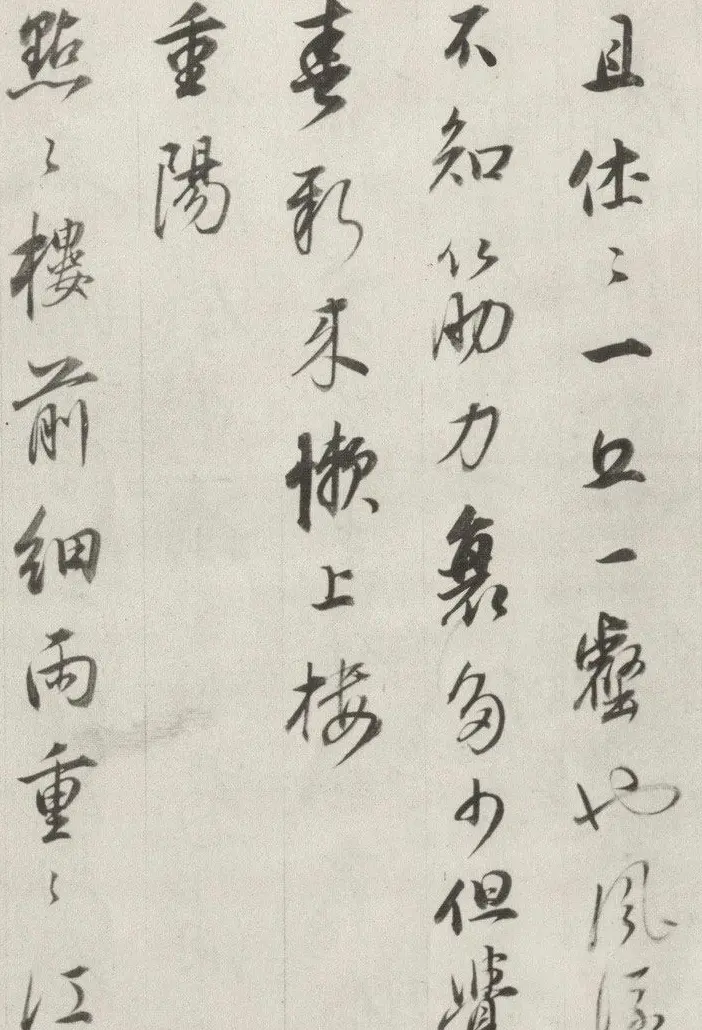 且休〻一丘一壑也風流
不知筋力衰多少但覺
新来懶上楼
重陽
點〻樓前細雨重〻江